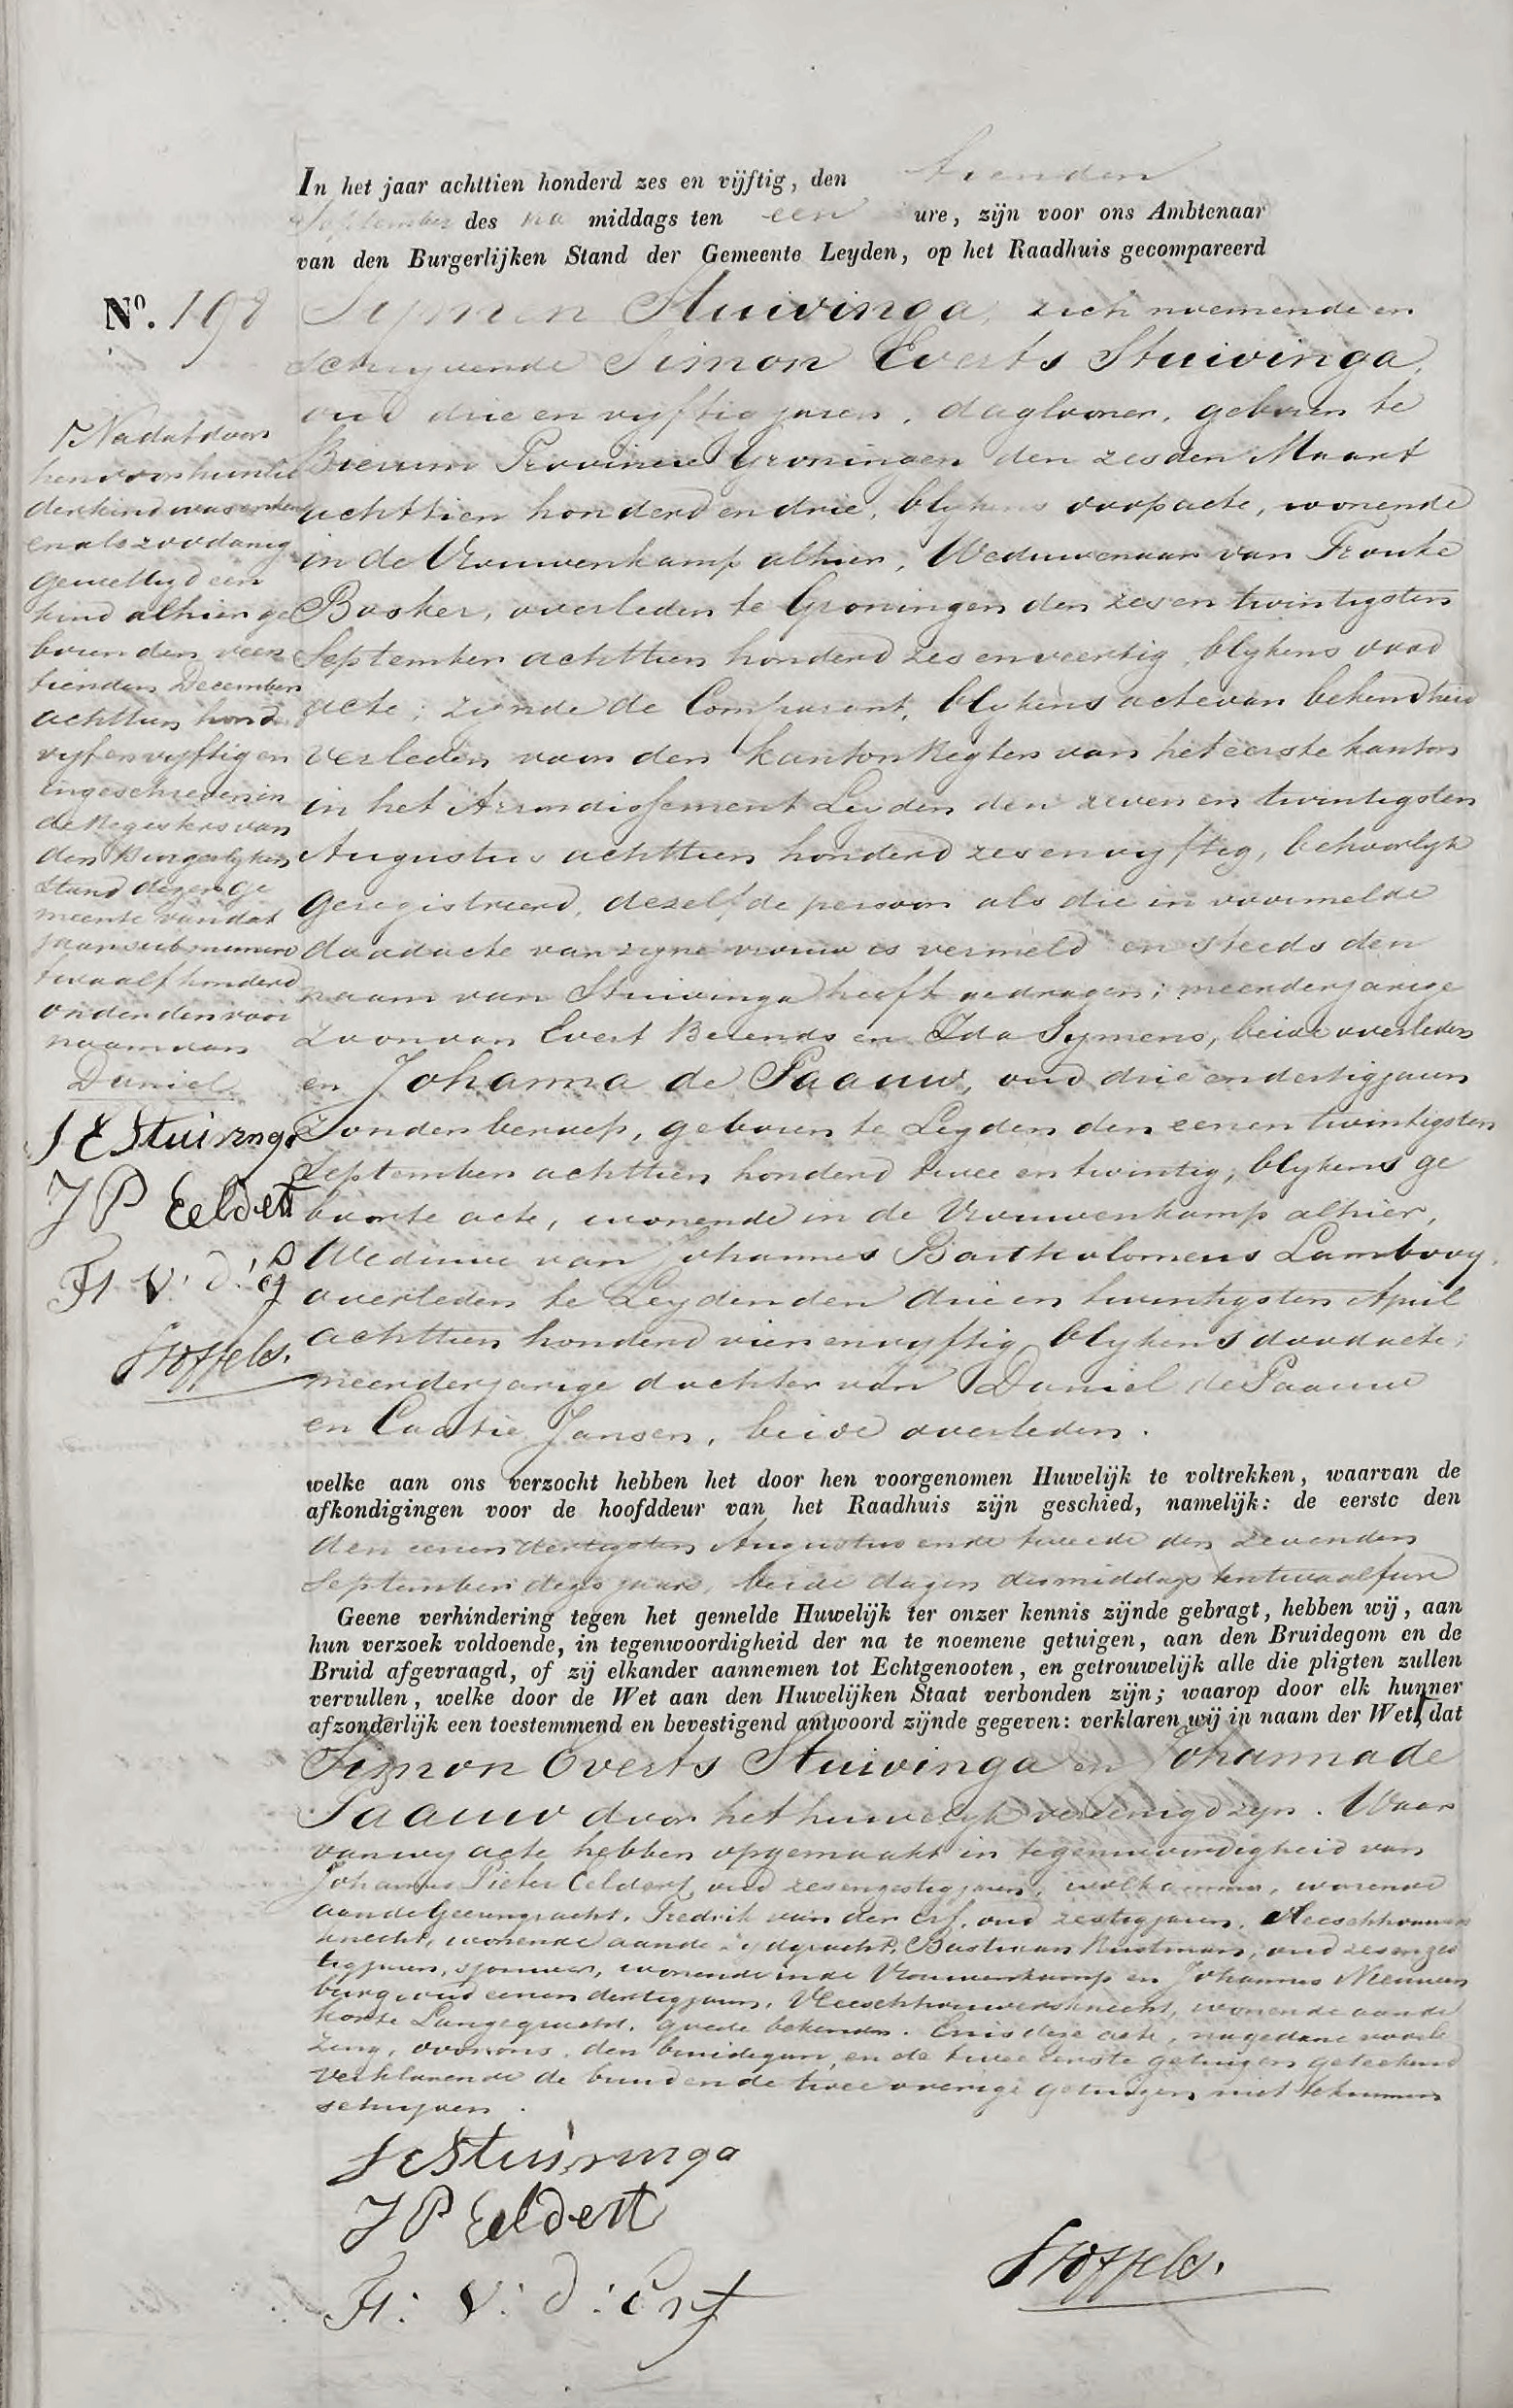 In het jaar achttien honderd zes en vijftig, den tienden
September des na middags ten een ure, zijn voor ons Ambtenaar
van den Burgerlijken Stand der Gemeente Leyden, op het Raadhuis gecompareerd
No. 198
Symen Stuivinga, zich noemende en
schryvende Simon Everts Stuivinga,
oud drie en vyftig jaren, daglooner, geboren te
Bierum Provincie Groningen den zesden Maart
achttien honderd en drie, blykens doopacte, wonende
in de Vrouwenkamp alhier, Weduwenaar van Frouke
Bosker, overleden te Groningen den zes en twintigsten
September achttien honderd zes en veertig, blykens dood
acte; zynde de Comparant, blykens acte van bekendheid
verleden voor den Kanton Regter van het eerste kanton
in het Arrondissement Leyden den zeven en twintigsten
Augustus achttien honderd zes en vyftig, behoorlyk
geregistreerd, dezelfde persoon als die in voormelde
doodacte van zyne vrouw is vermeld en steeds den
naam van Stuivinga heeft gedragen; meerderjarige
Zoon van Evert Berends en Ida Symens, beide overleden
en Johanna de Paauw, oud drie en dertig jaren
Zonder beroep, geboren te Leyden den eenen twintigsten
September achttien honderd twee en twintig, blykens ge
boorte acte, wonende in de Vrouwenkamp alhier,
Weduwe van Johannes Bartholomeus Lambooy,
overleden te Leyden den drie en twintigsten April
achttien honderd vier en vyftig blykens doodacte;
meerderjarige dochter van Daniel de Paauw
en Caatie Jansen, beide overleden.
Γ Nadat door
hen voor hunlie
der kind was erken
en als zoodanig
gewettigd een
kind alhier ge
boren den veer
tienden December
achttien hond
vyf en vyftig en
ingeschreven in
de Registers van
den Burgerlyken
Stand dezer Ge
meente van dat
jaar sub numero
twaalf honderd
onder den voor
naam van
Daniel
S E Stuivinga
J P Eeldert
Fr. v. d. Erf
Stoffels.
welke aan ons verzocht hebben het door hen voorgenomen Huwelijk te voltrekken, waarvan de
afkondigingen voor de hoofddeur van het Raadhuis zijn geschied, namelijk: de eerste den
den eenen dertigsten Augustus en de tweede den zevenden
September dezes jaars, beide dagen des middags ten twaalf ure
Geene verhindering tegen het gemelde Huwelijk ter onzer kennis zijnde gebragt, hebben wij, aan
hun verzoek voldoende, in tegenwoordigheid der na te noemene getuigen, aan den Bruidegom en de
Bruid afgevraagd, of zij elkander aannemen tot Echtgenooten, en getrouwelijk alle die pligten zullen
vervullen, welke door de Wet aan den Huwelijken Staat verbonden zijn; waarop door elk hunner
afzonderlijk een toestemmend en bevestigend antwoord zijnde gegeven: verklaren wij in naam der Wet Γ, dat
Simon Everts Stuivinga en Johanna de
Paauw door het huwelyk vereenigd zyn. Waar
van wy acte hebben opgemaakt in tegenwoordigheid van
Johannes Pieter Eeldert, oud zes en zestig jaren, wolkammer, wonende
aan de Geeregracht, Fredrik van der Erf, oud zestig jaren, Vleeschhouwers
knecht, wonende aan de gracht, Bastiaan oud zes en zes
tig jaren, sjouwer, wonende in de Vrouwenkamp en Johannes Nieuwen
burg, oud eenen dertig jaren, Vleeschhouwersknecht, wonende aan de
korte Langegracht, goede bekenden. En is deze acte, na gedane voorle
zing, door ons, den bruidegom, en de twee eerste getuigen geteekend
verklarende de bruid en de twee overige getuigen niet te kunnen
schryven.
S E Stuivinga
J P Eeldert
Fr: v: d: Erf
Stoffels.